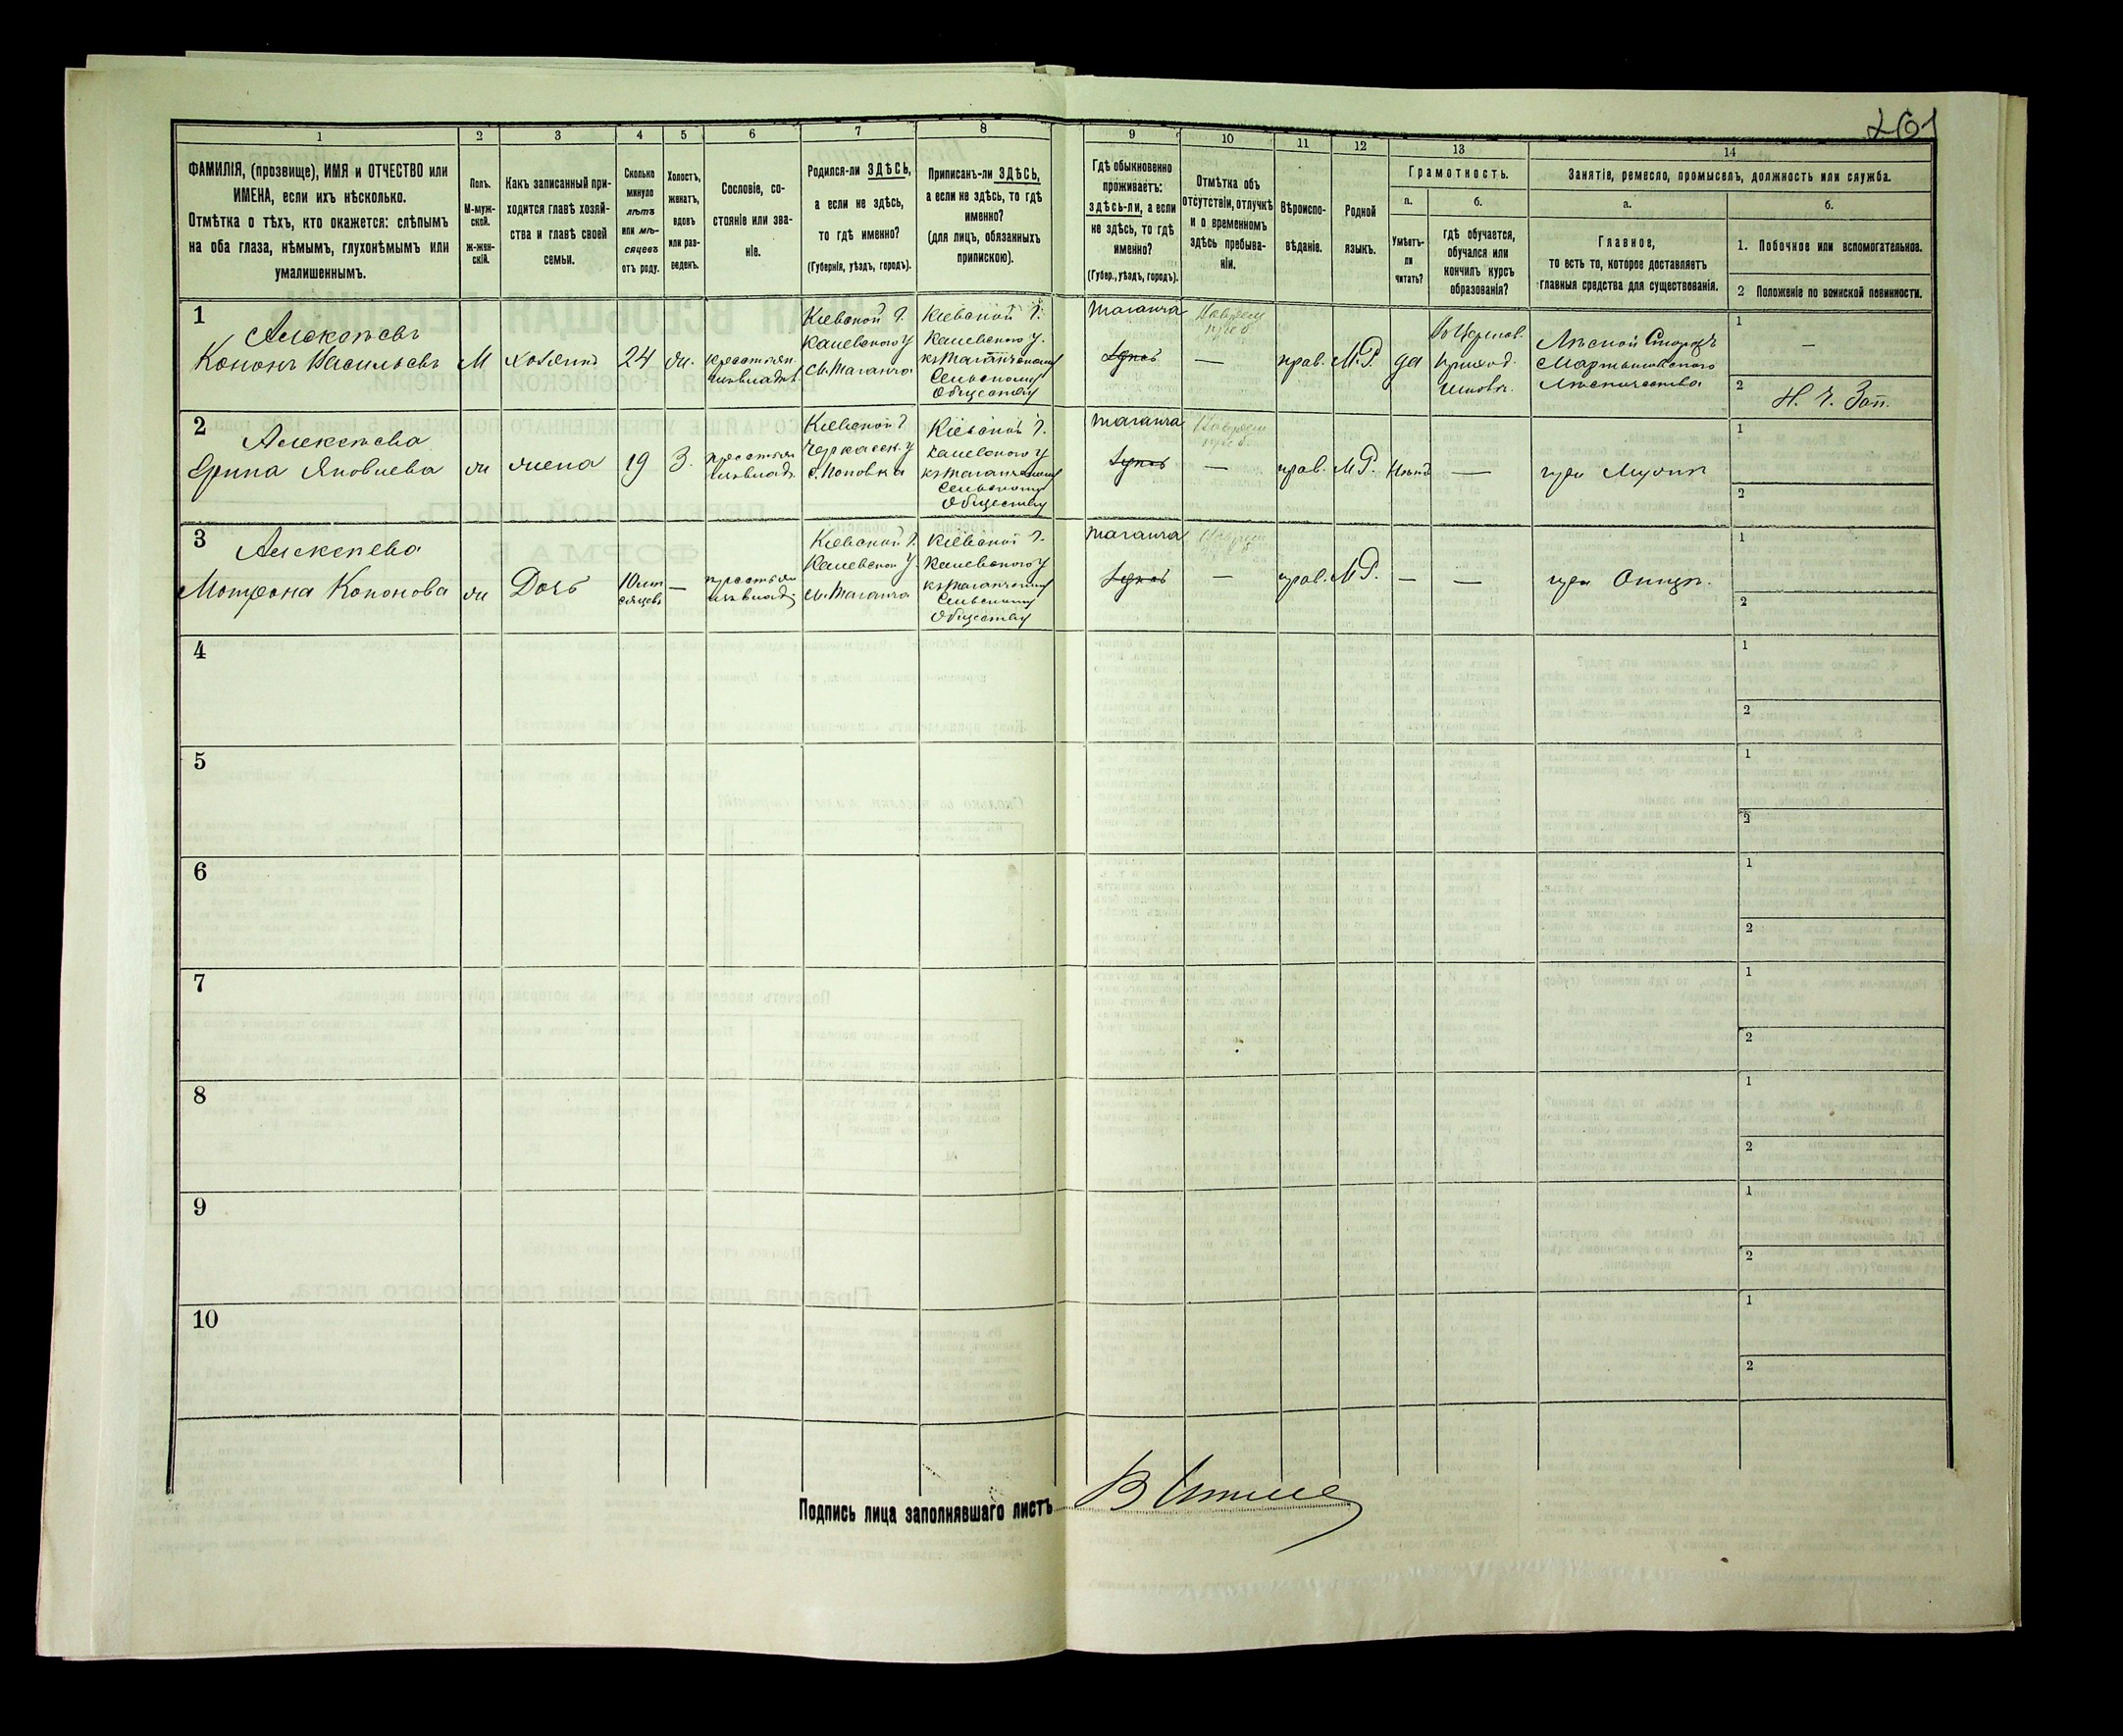 261
1
2
3
4
5
6
7
8
9
10
11
12
13
14
ФАМИЛІЯ, (прозвище), ИМЯ и ОТЧЕСТВО или
ИМЕНА, если ихъ нѣсколько.
Отмѣтка о тѣхъ, кто окажется: слѣпымъ
на оба глаза, нѣмымъ, глухонѣмымъ или
умалишеннымъ.
Полъ.
М-муж-
ской.
ж-жен-
скій.
Какъ записанный при-
ходится главѣ хозяй-
ства и главѣ своей
семьи.
Сколько
минуло
лѣтъ
или мѣ-
сяцевъ
отъ роду.
Холостъ,
женатъ,
вдовъ
или раз-
веденъ.
Сословіе, со-
стояніе или зва-
ніе.
Родился-ли ЗДѢСЬ,
а если не здѣсь,
то гдѣ именно?
(Губернія, уѣздъ, городъ).
Приписанъ-ли ЗДѢСЬ,
а если не здѣсь, то гдѣ
именно?
(для лицъ, обязанныхъ
припискою).
Гдѣ обыкновенно
проживаетъ:
здѣсь-ли, а если
не здѣсь, то гдѣ
именно?
(Губер., уѣздъ, городъ).
Отмѣтка объ
отсутствіи, отлучкѣ
и о временномъ
здѣсь пребыва-
ніи.
Вѣроиспо-
вѣданіе.
Родной
языкъ.
Грамотность.
а.
Умѣетъ-
ли
читать?
б.
гдѣ обучается,
обучался или
кончилъ курсъ
образованія?
Занятіе, ремесло, промыселъ, должность или служба.
а.
Главное,
то есть то, которое доставляетъ
главныя средства для существованія.
б.
1. Побочное или вспомогательное.
2 Положеніе по воинской повинности.
1
Алексѣевъ
Кононъ Васильевъ
М
хозяинъ
24
ж.
крестьян.
Кіевской Г.
Каневского У
м. Таганча
Кіевской Г.
Каневского У.
къ Таганчскому
Сельскому
Обществу
Таганча
—
прав.
М.Р.
да
Въ Церков.
приход.
Лѣсной Сторожъ
Мартыновского
Лѣсничества
1
—
2
Н. Ч. Зап.
2
Алексѣева
Ирина Яковлева
ж
жена
19
З.
Кіевской Г
Черкасск. У
с. Поповка
Кіевской Г.
Каневского У
къ Таганчскому
Сельскому
Обществу
Таганча
—
прав.
М.Р.
Нѣтъ
—
при Мужѣ
1
2
3
Алексѣева
Мотрона Кононова
ж
Дочь
10 мѣ
сяцевъ
—
Кіевской Г.
Каневской У.
м. Таганча
Кіевской Г.
Каневского У
къ Таганчскому
Сельскому
Обществу
Таганча
—
прав.
М.Р.
—
—
при Отцѣ.
1
2
4
1
2
5
1
2
6
1
2
7
1
2
8
1
2
9
1
2
10
1
2
Подпись лица заполнявшаго листъ